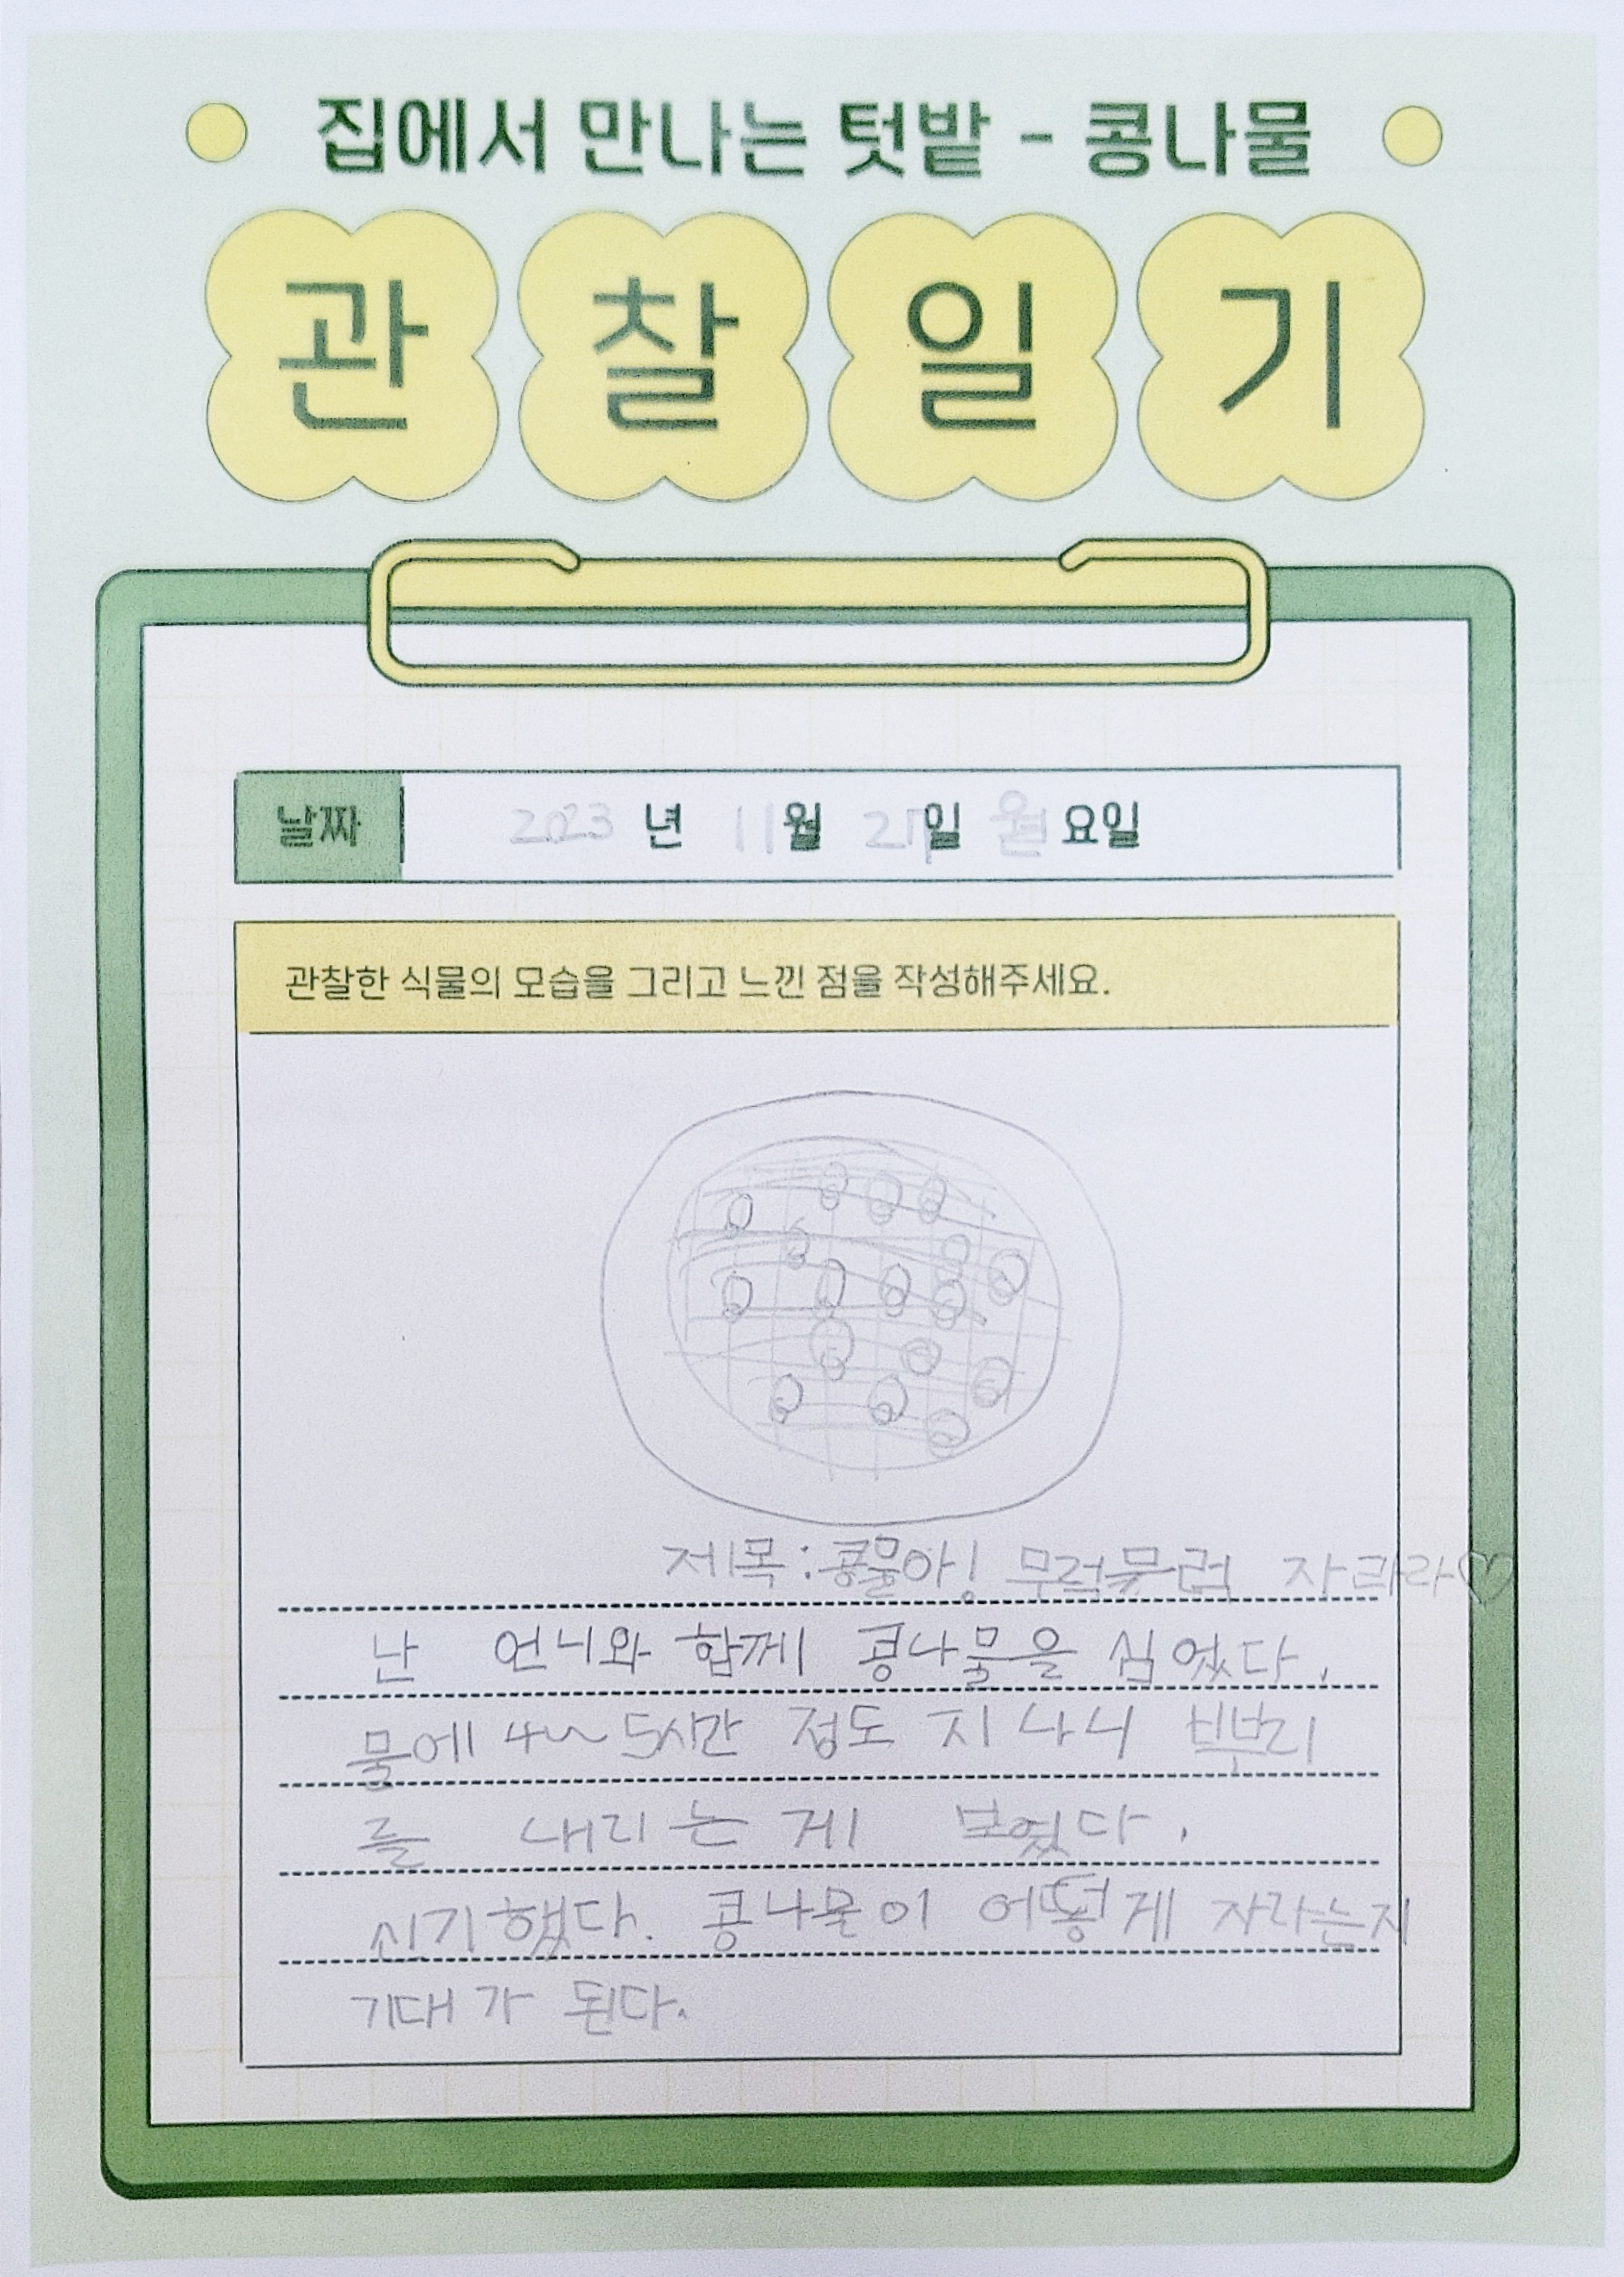 집에서 만나는 텃밭 - 콩나물
관찰일기
날짜 2023 년 11월 27일 월요일
관찰한 식물의 모습을 그리고 느낀 점을 작성해주세요.
제목:콩물아! 무럭무럭 자라라♡
난 언니와 함께 콩나물을 심었다.
물에 4~5시간 정도 지나니
를 내리는게 보였다.
신기했다. 콩나물이 어떻게 자라는지
기대가 된다.